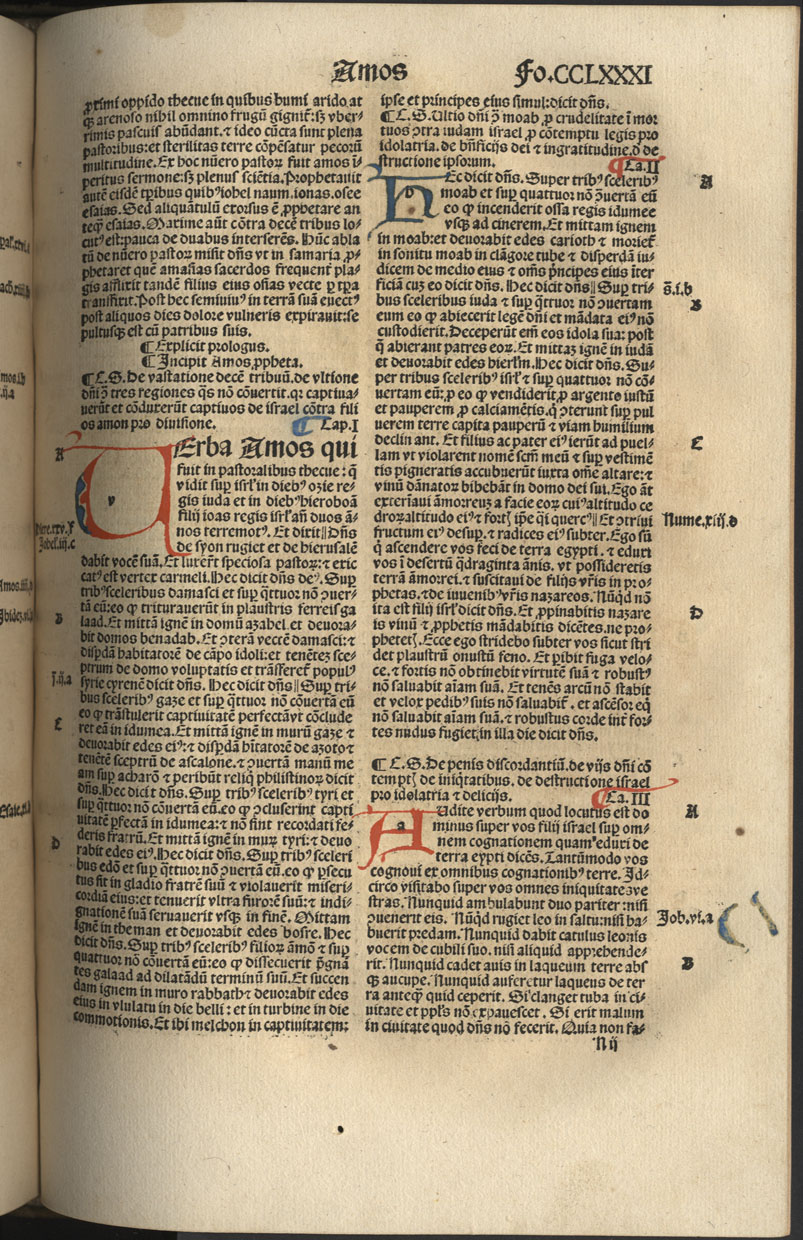 Amos
Fo.CCLXXXI
ꝓximi oppido thecue in quibus humi arido.at
qꝫ arenoso nihil omnino frugũ gignit᷑:sꝫ vber-
rimis pascuis abũdant.⁊ ideo cũcta sunt plena
pastoribus:et sterilitas terre cõpẽsatur pecorũ
multitudine. Ex hoc nũero pastoꝝ fuit amos ĩ-
peritus sermone:sꝫ plenus sciẽtia. Prophetauit
autẽ eisdẽ tꝑibus quibꝰ iohel naum.ionas.osee
esaias. Sed aliquãtulũ exorsus ẽ ꝓphetare an
teqꝫ esaias. Maxime aũt cõtra decẽ tribus lo-
cutꝰ est:pauca de duabus interserẽs. Hũc abla
tũ de nũero pastoꝝ misit dñs vt in samaria ꝓ-
phetaret quẽ amañas sacerdos frequent᷑ pla-
gis afflixit tandẽ filius eius osias vecte ꝑ tꝑa
trãsfixit. Post hec semiuiuꝰ in terrã suã euectꝰ
post aliquos dies dolore vulneris expirauit:se
pultusqꝫ est cũ patribus suis.
¶ Explicit prologus.
¶ Incipit Amos ꝓpheta.
¶ C.S. De vastatione decẽ tribuũ.de vltione
dñi ɔ̃ tres regiones qͥs nõ cõuertit.qꝛ captiua-
uerũt et cõduxerũt captiuos de israel cõtra fili
os amon pro diuisione. ¶ Cap.I
VErba Amos qui
fuit in pastoralibus thecue: q̃
vidit suꝑ isrł in diebꝰ ozie re-
gis iuda et in diebꝰ hieroboã
filij ioas regis isrł añ duos ã-
nos terremotꝰ. Et dixit‖ Dñs
de syon rugiet et de hierusalẽ
dabit vocẽ suã. Et luxert᷑ speciosa pastoꝝ:⁊ exic
catꝰ est vertex carmeli. Hec dicit dñs deꝰ. Suꝑ
tribꝰ sceleribus damasci et suꝑ qͣttuor nõ ɔuer-
tã eũ:eo ꝙ triturauerũt in plaustris ferreis ga
laad. Et mittã ignẽ in domũ azahel.et deuora-
bit domos benadab. Et ɔterã vectẽ damasci:⁊
disꝑdã habitatorẽ de cãpo idoli:et tenẽteꝫ sce-
ptrum de domo voluptatis et trãsferet᷑ populꝰ
syrie cyrenẽ dicit dñs. Hec dicit dñs‖ Suꝑ tri-
bus sceleribꝰ gaze et suꝑ qͣttuor nõ cõuertã eũ
eo ꝙ trãstulerit captiuitatẽ perfectã vt cõclude
ret eã in idumea. Et mittã ignẽ in murũ gaze ⁊
deuorabit edes eiꝰ:⁊ disꝑdã hĩtatorẽ de azoto ⁊
tenẽtẽ sceptrũ de ascalone.⁊ ɔuertã manũ me
am suꝑ acharõ ⁊ peribũt reliqͥ philistinoꝝ dicit
dñs. Hec dicit dñs. Suꝑ tribꝰ sceleribꝰ tyri et
suꝑ qͣttuor nõ cõuertã eũ.eo ꝙ ɔcluserint capti
uitatẽ ꝑfectã in idumea:⁊ nõ sint recordati fe-
deris fratrũ. Et mittã ignẽ in muꝝ tyri:⁊ deuo
rabit edes eiꝰ. Hec dicit dñs. Suꝑ tribꝰ sceleri
bus edõ et suꝑ qͣttuor nõ ɔuertã eũ.eo ꝙ ꝑsecu
tus sit in gladio fratrẽ suũ ⁊ violauerit miseri-
cordiã eius:et tenuerit vltra furorẽ suũ:⁊ indi-
gnationẽ suã seruauerit vsqꝫ in finẽ. Mittam
ignẽ in theman et deuorabit edes bosre. Hec
dicit dñs. Suꝑ tribꝰ sceleribꝰ filioꝝ ãmõ ⁊ suꝑ
quattuor nõ cõuertã eũ:eo ꝙ dissecuerit p̃gnã
tes galaad ad dilatãdũ terminũ suũ. Et succen
dam ignem in muro rabbath:⁊ deuorabit edes
eius in vlulatu in die belli : et in turbine in die
commotionis. Et ibi melchon in captiuitatem:
ipse et principes eius simul:dicit dñs.
¶ C.S. Ultio dñi ɔ̃ moab ꝓ crudelitate ĩ mor
tuos ɔtra iudam israel ꝓ cõtemptu legis pro
idolatria. de bñficijs dei ⁊ ingratitudine.⁊ de de
structione ipsorum. ¶ Ca.II
HEc dicit dñs. Super tribꝰ sceleribꝰ
moab et suꝑ quattuor nõ ɔuertã eũ
eo ꝙ incenderit ossa regis idumee
vsqꝫ ad cinerem. Et mittam ignem
in moab:et deuorabit edes carioth ⁊ moriet᷑
in sonitu moab in clãgore tube ⁊ disperdã iu-
dicem de medio eius ⁊ oms p̃ncipes eius ĩter
ficiã cuꝫ eo dicit dñs. Hec dicit dñs‖ Suꝑ tri-
bus sceleribus iuda ⁊ suꝑ qͣttuor nõ ɔuertam
eum eo ꝙ abiecerit legẽ dñi et mãdata eiꝰ nõ
custodierit. Deceperũt em̃ eos idola sua: post
q̃ abierant patres eoꝝ. Et mittaꝫ ignẽ in iudã
et deuorabit edes hierłm. Hec dicit dñs. Su-
per tribus sceleribꝰ isrł ⁊ suꝑ quattuor nõ cõ-
uertam eũ:ꝓ eo ꝙ vendiderit ꝓ argento iustũ
et pauperem ꝓ calciamẽtis.qͥ ɔterunt suꝑ pul
uerem terre capita pauperũ ⁊ viam humilium
declinant. Et filius ac pater eiꝰ ierũt ad puel-
lam vt violarent nomẽ scm̃ meũ ⁊ suꝑ vestimẽ
tis pigneratis accubuerũt iuxta om̃e altare:⁊
vinũ dãnatoꝝ bibebãt in domo dei sui. Ego ãt
exterĩaui ãmorreuꝫ a facie eoꝝ cuiꝰ altitudo ce
droꝝ altitudo eiꝰ ⁊ fortꝭ ip̃e qͣi quercꝰ‖ Et ɔtriui
fructum eiꝰ desuꝑ.⁊ radices eiꝰ subter. Ego sũ
qͥ ascendere vos feci de terra egypti. ⁊ eduxi
vos ĩ desertũ qͣdraginta ãnis. vt possideretis
terrã amorrei.⁊ suscitaui de filijs vr̃is in pro-
phetas.⁊ de iuuenibꝰ vr̃is nazareos. Nũqͥd nõ
ita est filij isrł dicit dñs. Et ꝓpinabitis nazare
is vinũ ⁊ ꝓphetis mãdabitis dicẽtes.ne pro-
phetetꝭ. Ecce ego stridebo subter vos sicut stri
det plaustrũ onustũ feno. Et ꝑibit fuga velo-
ce.⁊ fortis nõ obtinebit virtutẽ suã ⁊ robustꝰ
nõ saluabit aĩam suã. Et tenẽs arcũ nõ stabit
et velox pedibꝰ suis nõ saluabit᷑. et ascẽsor eqͥ
nõ saluabit aĩam suã.⁊ robustus corde int̃ for-
tes nudus fugiet in illa die dicit dñs.
¶ C.S. De penis discordantiũ.de vijs dñi cõ
temptꝭ de iniqͥtatibus. de destructione israel
pro idolatria ⁊ delicijs. ¶ Ca.III
AUdite verbum quod locutus est do
minus super vos filij israel suꝑ om-
nem cognationem quam eduxi de
terra eypti dicẽs. Tantũmodo vos
cognoui ex omnibus cognationibꝰ terre. Id-
circo visitabo super vos omnes iniquitates ve
stras. Nunquid ambulabunt duo pariter :nisi
ɔuenerit eis. Nũqͥd rugiet leo in saltu:nisi ha-
buerit predam. Nunquid dabit catulus leonis
vocem de cubili suo. nisi aliquid apprehende-
rit. Nunquid cadet auis in laqueum terre absqꝫ
qꝫ aucupe. Nunquid auferetur laqueus de ter
ra anteqꝫ quid ceperit. Si clanget tuba in ci-
uitate et ppl's nõ expauescet . Si erit malum
in ciuitate quod dñs nõ fecerit. Quia non fa-
N ij
A
B
C
D
A
s̃.i.b
B
C
Nume.xiij.d
D
A
Job.vi.a
B